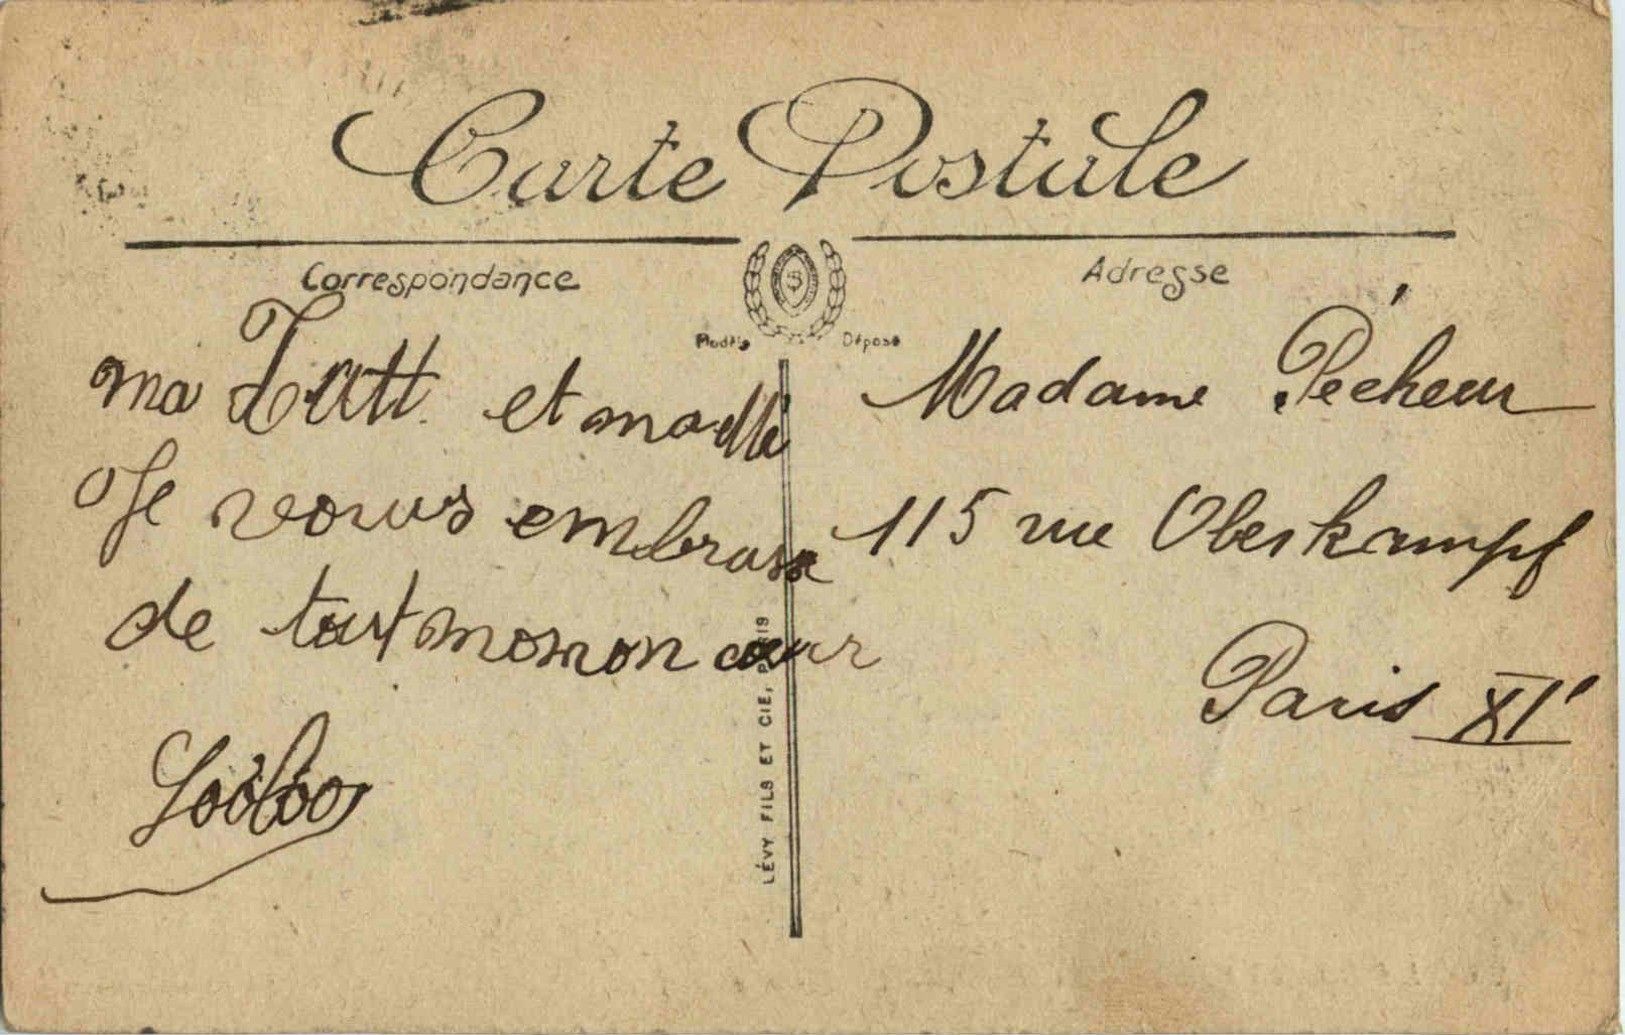 Carte Postale
Correspondance
Adresse
Modèle Déposé
ma Tatt et ma
Je vous embrasse
de tout momon cœur
Loulou
Madame Pécheur
115 rue Oberkampf
Paris XI
LÉVY FILS ET CIE, PARIS